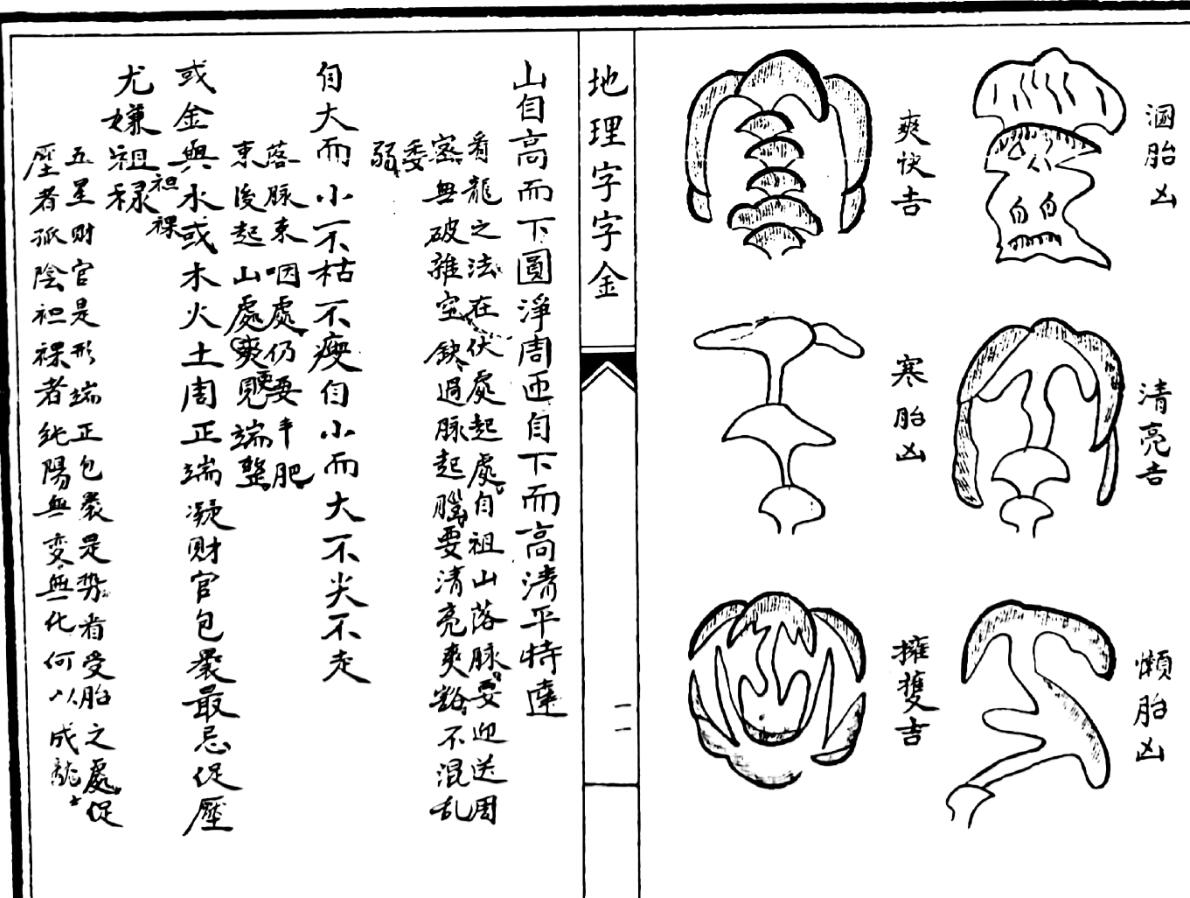 溷胎凶
爽快吉
清亮吉
寒胎凶
懶胎凶
擁護吉
地理字字金
一一
山自高而下圓淨周匝自下而高清平特達
看龍之法在伏處起處自祖山落脉要迎送周
密無破雜空缺過脉起腦要清亮爽豁不混乱
委
弱
自大而小不枯不瘦自小而大不尖不走
落脉束咽處仍要丰肥
束後起山處爽更見端整
或金與水或木火土周正端凝财官包裹最忌促壓
尤嫌祖禄
袒裸
五星财官是形端正包裹是势者受胎之處促
壓者孤陰袒裸者純陽無变無化何以成龍